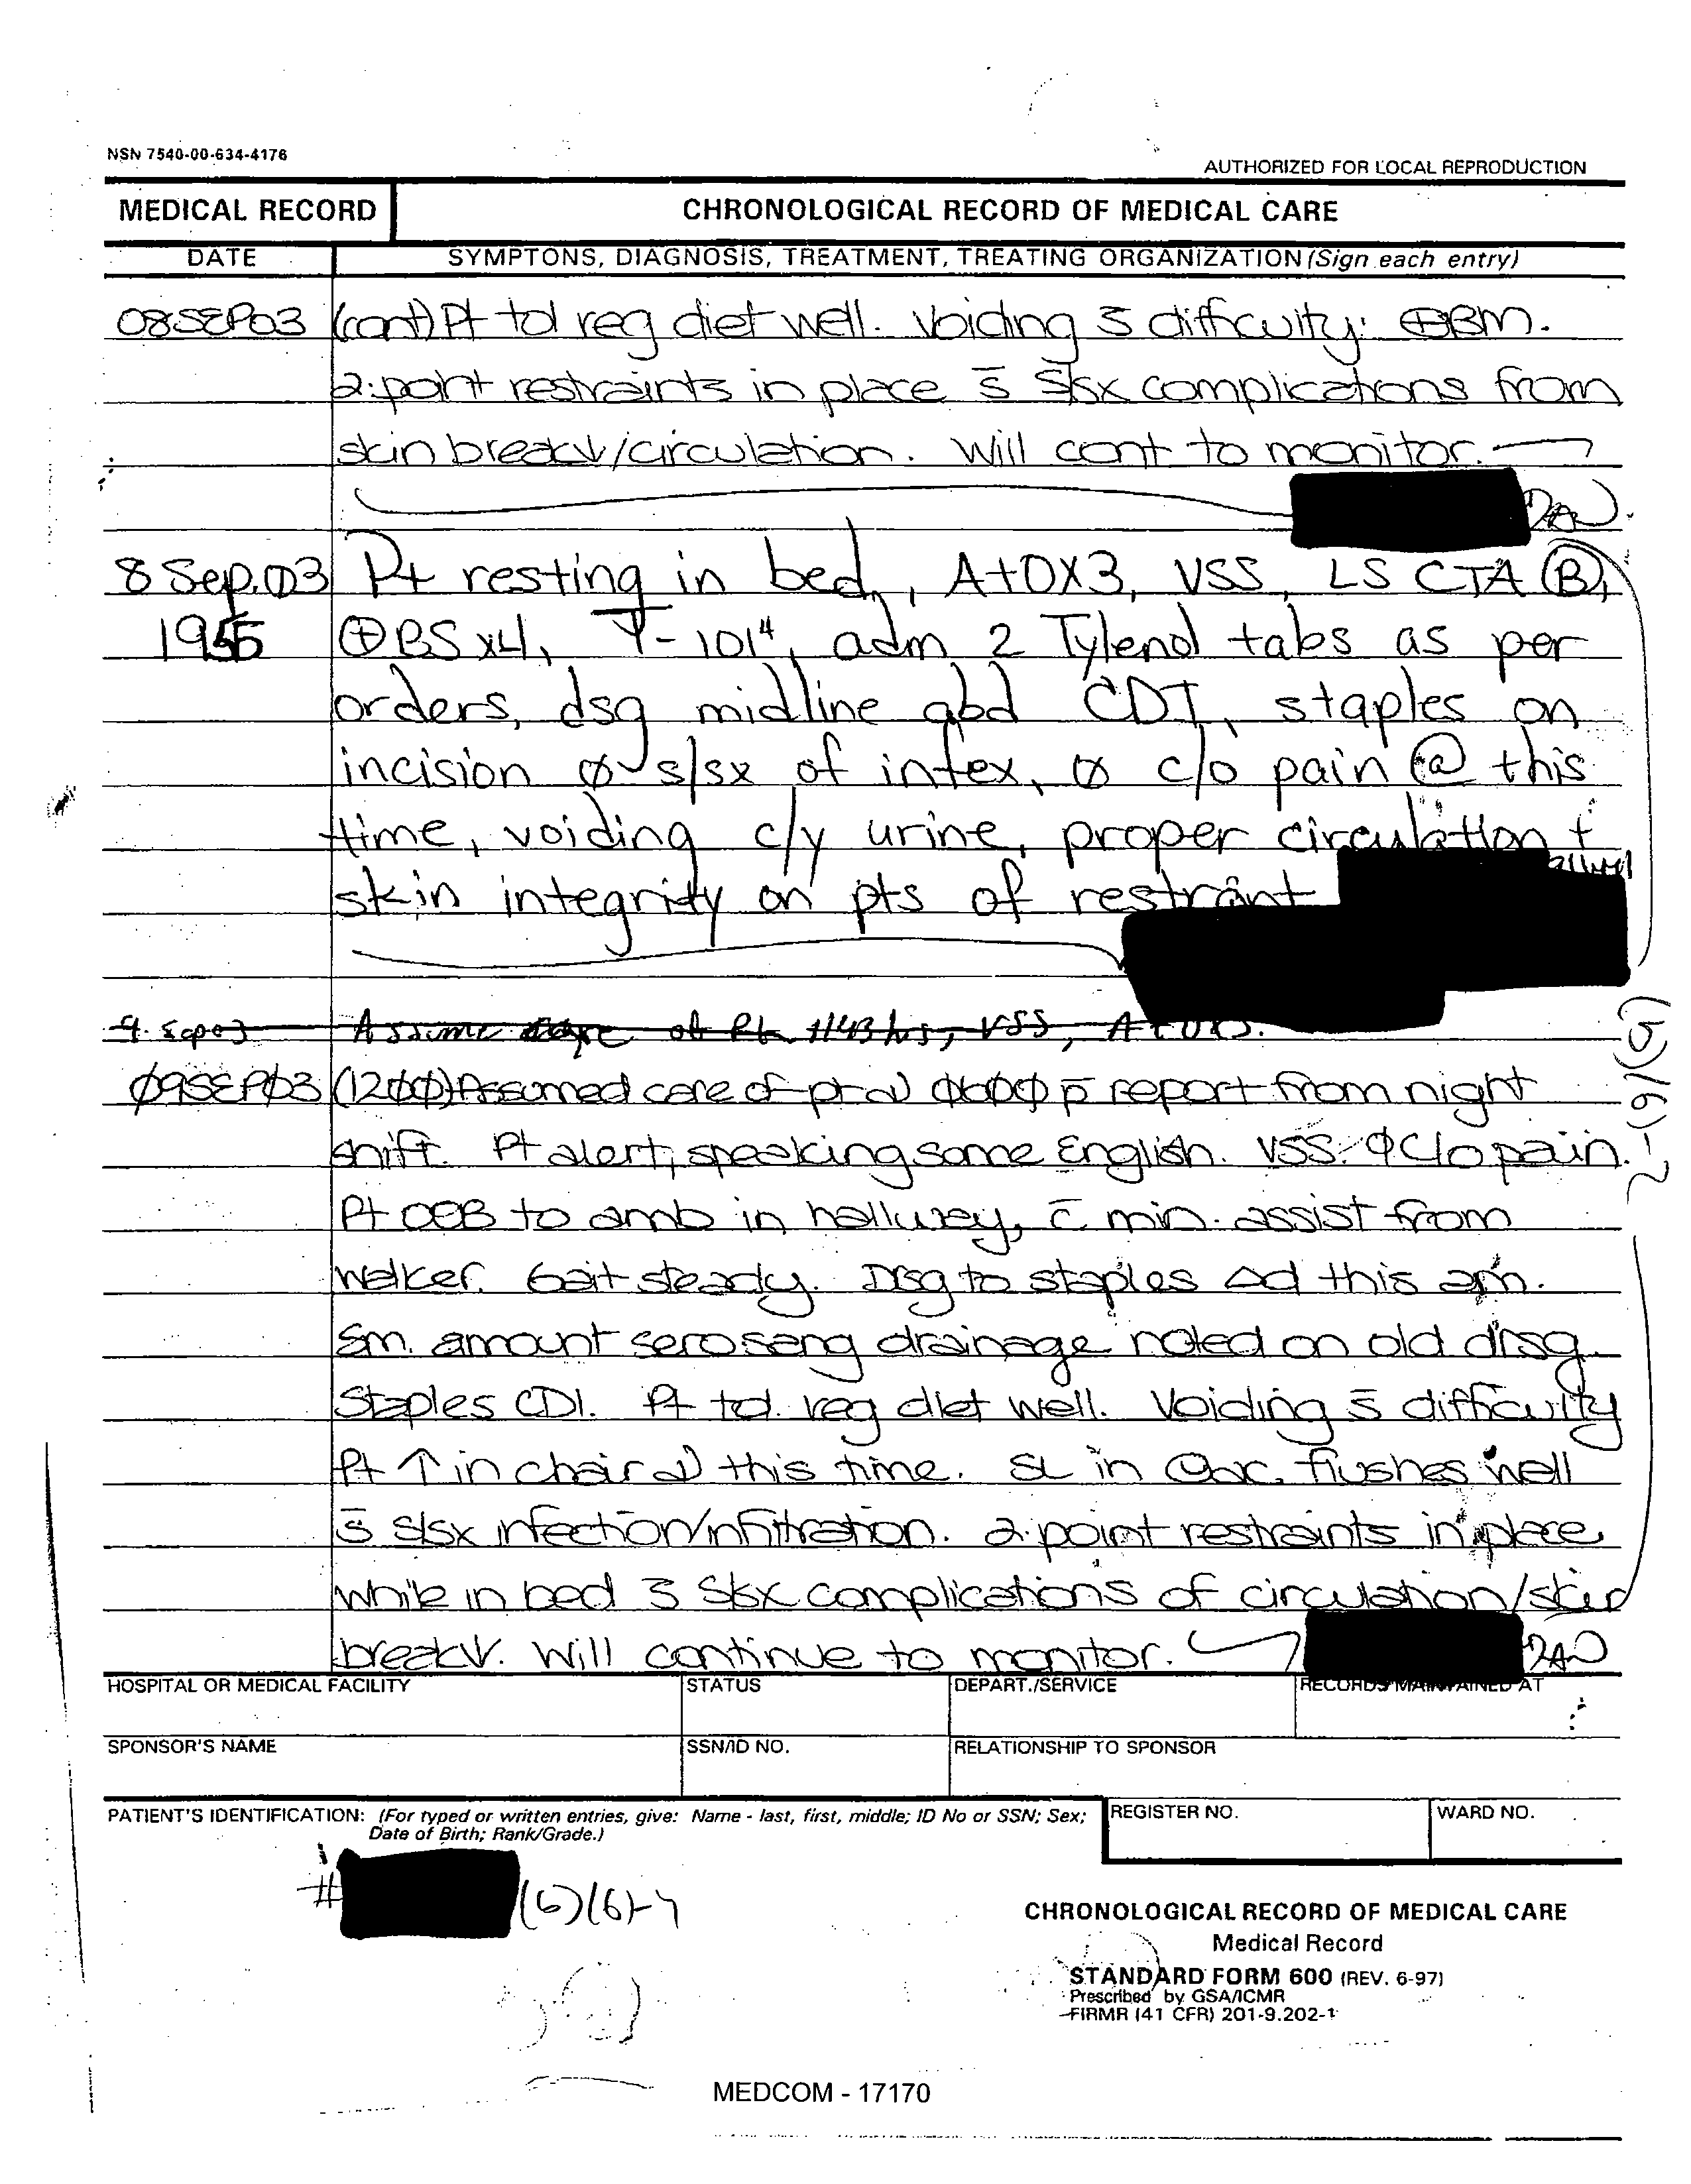 NSN 7540-00-634-4176
AUTHORIZED FOR LOCAL REPRODUCTION
MEDICAL RECORD
CHRONOLOGICAL RECORD OF MEDICAL CARE
DATE
SYMPTONS, DIAGNOSIS, TREATMENT, TREATING ORGANIZATION (Sign each entry)
08SEP03 (cont) Pt tol reg diet well. Voiding s̄ difficulty. ⊕BM.
2-point restraints in place s̄ S/sx complications from
skin break↓/circulation. Will cont to monitor.
8 Sep. 03 Pt resting in bed, A+OX3, VSS, LS CTA Ⓑ,
1955 ⊕BS x4, T-101⁴, adm 2 Tylenol tabs as per
orders, dsg midline abd CDI, staples on
incision ∅ s/sx of infex, ∅ c/o pain @ this
time, voiding c/y urine, proper circulation +
skin integrity on pts of restraint
9 Sep03 Assume care of Pt 1143 hrs, VSS, A+OX3.
09SEP03 (1200) Assumed care of pt @ 0600 p̄ report from night
shift. Pt alert, speaking some English. VSS. ∅ C/o pain.
Pt OOB to amb in hallway, c̄ min. assist from
walker. Gait steady. Dsg to staples ∆d this am.
Sm. amount serosang drainage noted on old drsg.
Staples CDI. Pt tol. reg diet well. Voiding s̄ difficulty
Pt ↑ in chair @ this time. SL in flushes well
s̄ s/sx infection/infiltration. 2-point restraints in place
while in bed s̄ S/sx complications of circulation/skin
break↓. Will continue to monitor.
HOSPITAL OR MEDICAL FACILITY
STATUS
DEPART./SERVICE
RECORDS MAINTAINED AT
SPONSOR'S NAME
SSN/ID NO.
RELATIONSHIP TO SPONSOR
PATIENT'S IDENTIFICATION: (For typed or written entries, give: Name - last, first, middle; ID No or SSN; Sex;
Date of Birth; Rank/Grade.)
REGISTER NO.
WARD NO.
#
(6)(6)-4
CHRONOLOGICAL RECORD OF MEDICAL CARE
Medical Record
STANDARD FORM 600 (REV. 6-97)
Prescribed by GSA/ICMR
FIRMR (41 CFR) 201-9.202-1
MEDCOM - 17170